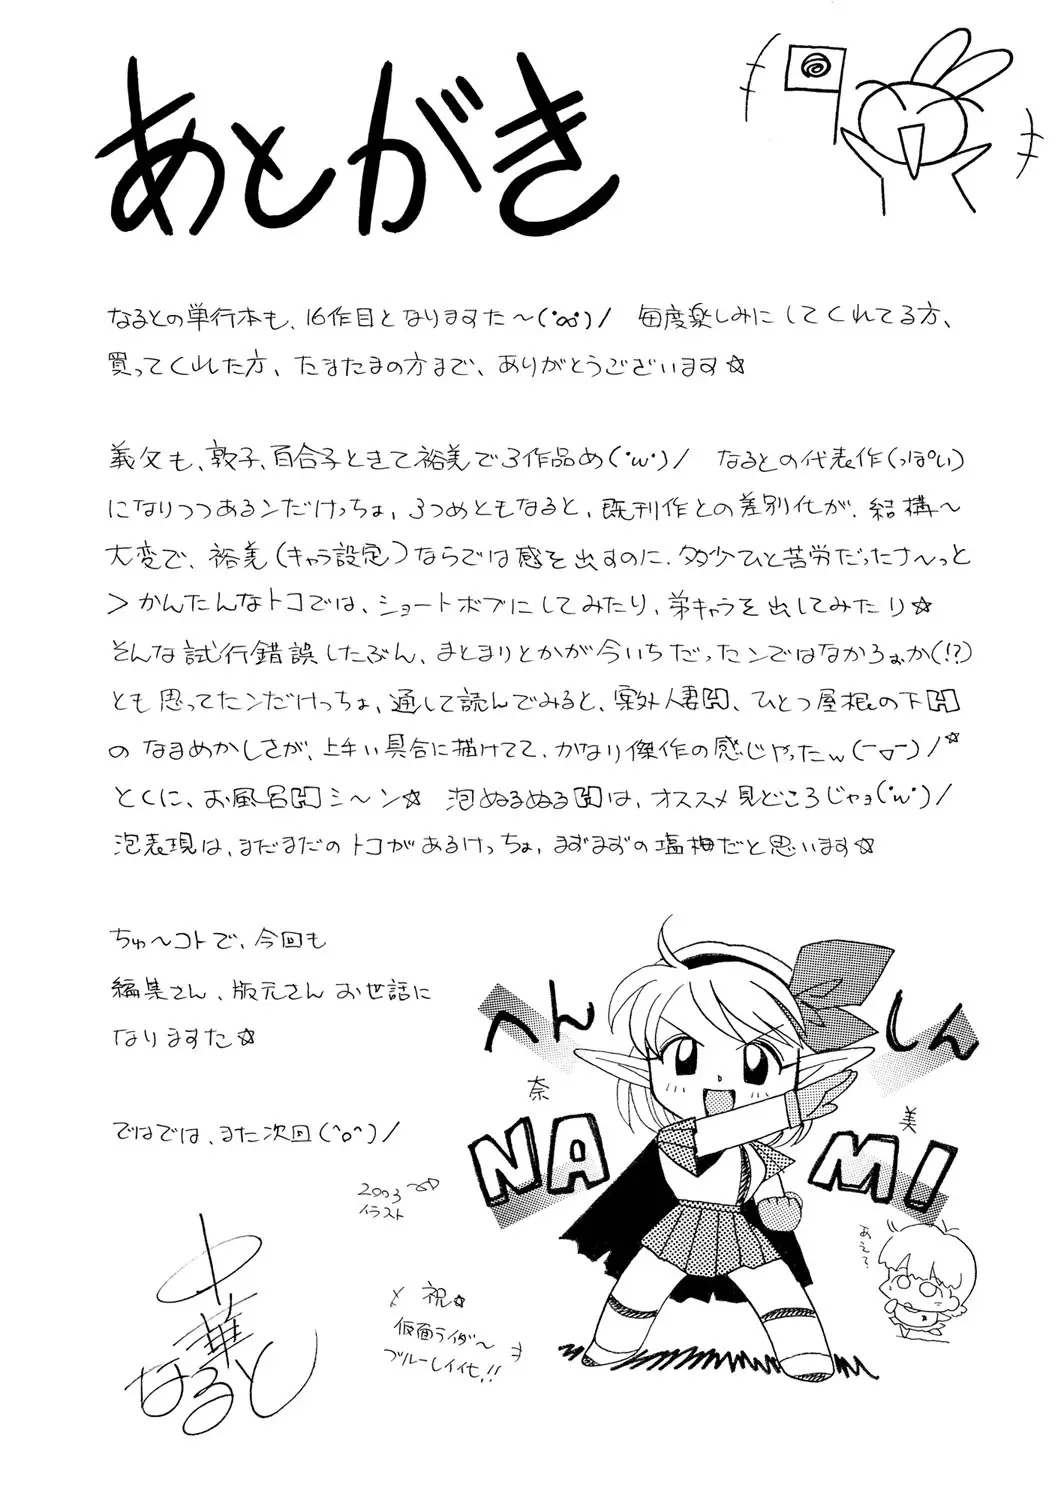 あとがき
なるとの単行本も、16作目となりますた〜(･ω･)/ 毎度楽しみにしてくれてる方、
買ってくれた方、たまたまの方まで、ありがとうございます☆
義父も、敦子、百合子ときて裕美で3作品め('ω')/ なるとの代表作(っぽい)
になりつつあるンだけっちょ、3つめともなると、既刊作との差別化が、結構〜
大変で、裕美(キャラ設定)ならでは感を出すのに、多少ひと苦労だったナ〜っと
>かんたんなトコでは、ショートボブにしてみたり、弟キャラを出してみたり☆
そんな試行錯誤したぶん、まとまりとかが今いちだったンではなかろぉか(!?)
とも思ってたンだけっちょ、通して読んでみると、案外人妻H、ひとつ屋根の下H
のなまめかしさが、上手い具合に描けてて、かなり傑作の感じやったw(￣▽￣)/☆
とくに、お風呂Hシ〜ン☆ 泡ぬるぬるHは、オススメ見どころじゃョ('ω')/
泡表現は、まだまだのトコがあるけっちょ、まずまずの塩梅だと思います☆
ちゅ〜コトで、今回も
編集さん、版元さんお世話に
なりますた☆
ではでは、また次回(^o^)/
へんしん
奈美
NAMI
2003
イラスト
あえて?
祝☆
仮面ライダ〜
ブルーレイ化!!
中華なると